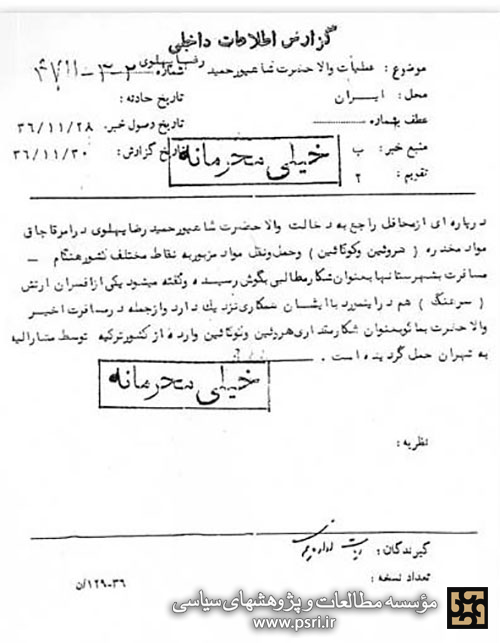 گزارش اطلاعات داخلی
موضوع : عملیات والا حضرت شاهپور حمید رضا پهلوی شماره
محل : ایران تاریخ حادثه :
عطف بشماره تاریخ وصول خبر: ۳۶/۱۱/۲۸
منبع خبر: ب تاریخ گزارش: ۳۶/۱۱/۳۰
تقویم : ۲
خیلی محرمانه
در پاره ای از محافل راجع به دخالت والا حضرت شاهپور حمید رضا پهلوی در امر قاچاق
مواد مخدره ( هروئین و کوکائین ) و حمل و نقل مواد مزبور به نقاط مختلف کشور هنگام -
مسافرت بشهرستانها بعنوان شکار مطالبی بگوش رسیده و گفته میشود یکی از افسران ارتش
( سرهنگ ) هم در اینمورد با ایشان همکاری نزدیک دارد و از جمله در مسافرت اخیر
والا حضرت بماکو بعنوان شکار مقداری هروئین و کوکائین وارده از کشور ترکیه توسط مشارالیه
به تهران حمل گردیده است .
خیلی محرمانه
نظریه :
گیرندگان : ریاست اداره
تعداد نسخه :
۱۲۹-۳۶/ن
مؤسسه مطالعات و پژوهشهای سیاسی
www.psri.ir